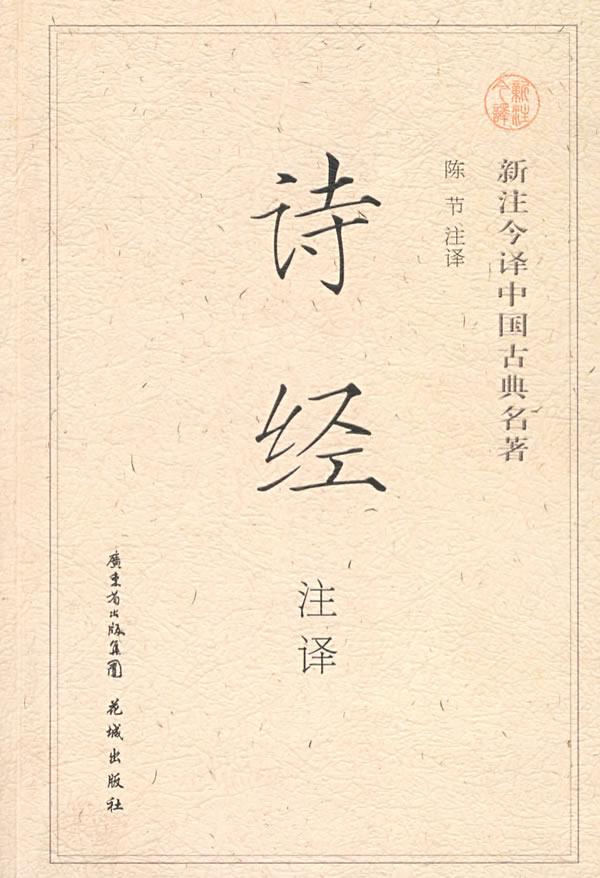 新注今译
新注今译中国古典名著
陈节 注译
诗经
注译
廣东省出版集團 花城出版社